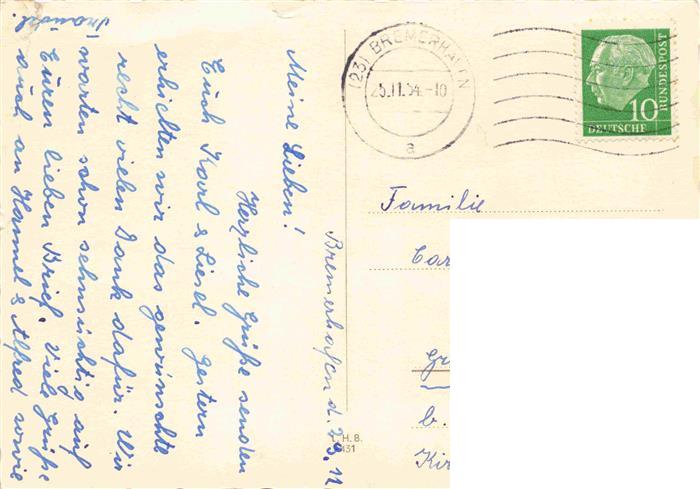 Bremerhafen d. 25. 11
Meine Lieben!
Herzliche Grüße senden
Euch Karl & Liesel. Gestern
erhielten wir das gewünschte
recht vielen Dank dafür. Wir
warten schon sehnsüchtig auf
Euren lieben Brief. Viele Grüße
auch an Hannel & Alfred sowie
(23) BREMERHAVEN
25.11.54.-10
a
10
DEUTSCHE
BUNDESPOST
Familie
Car
Gr
b.
Kir
H. B.